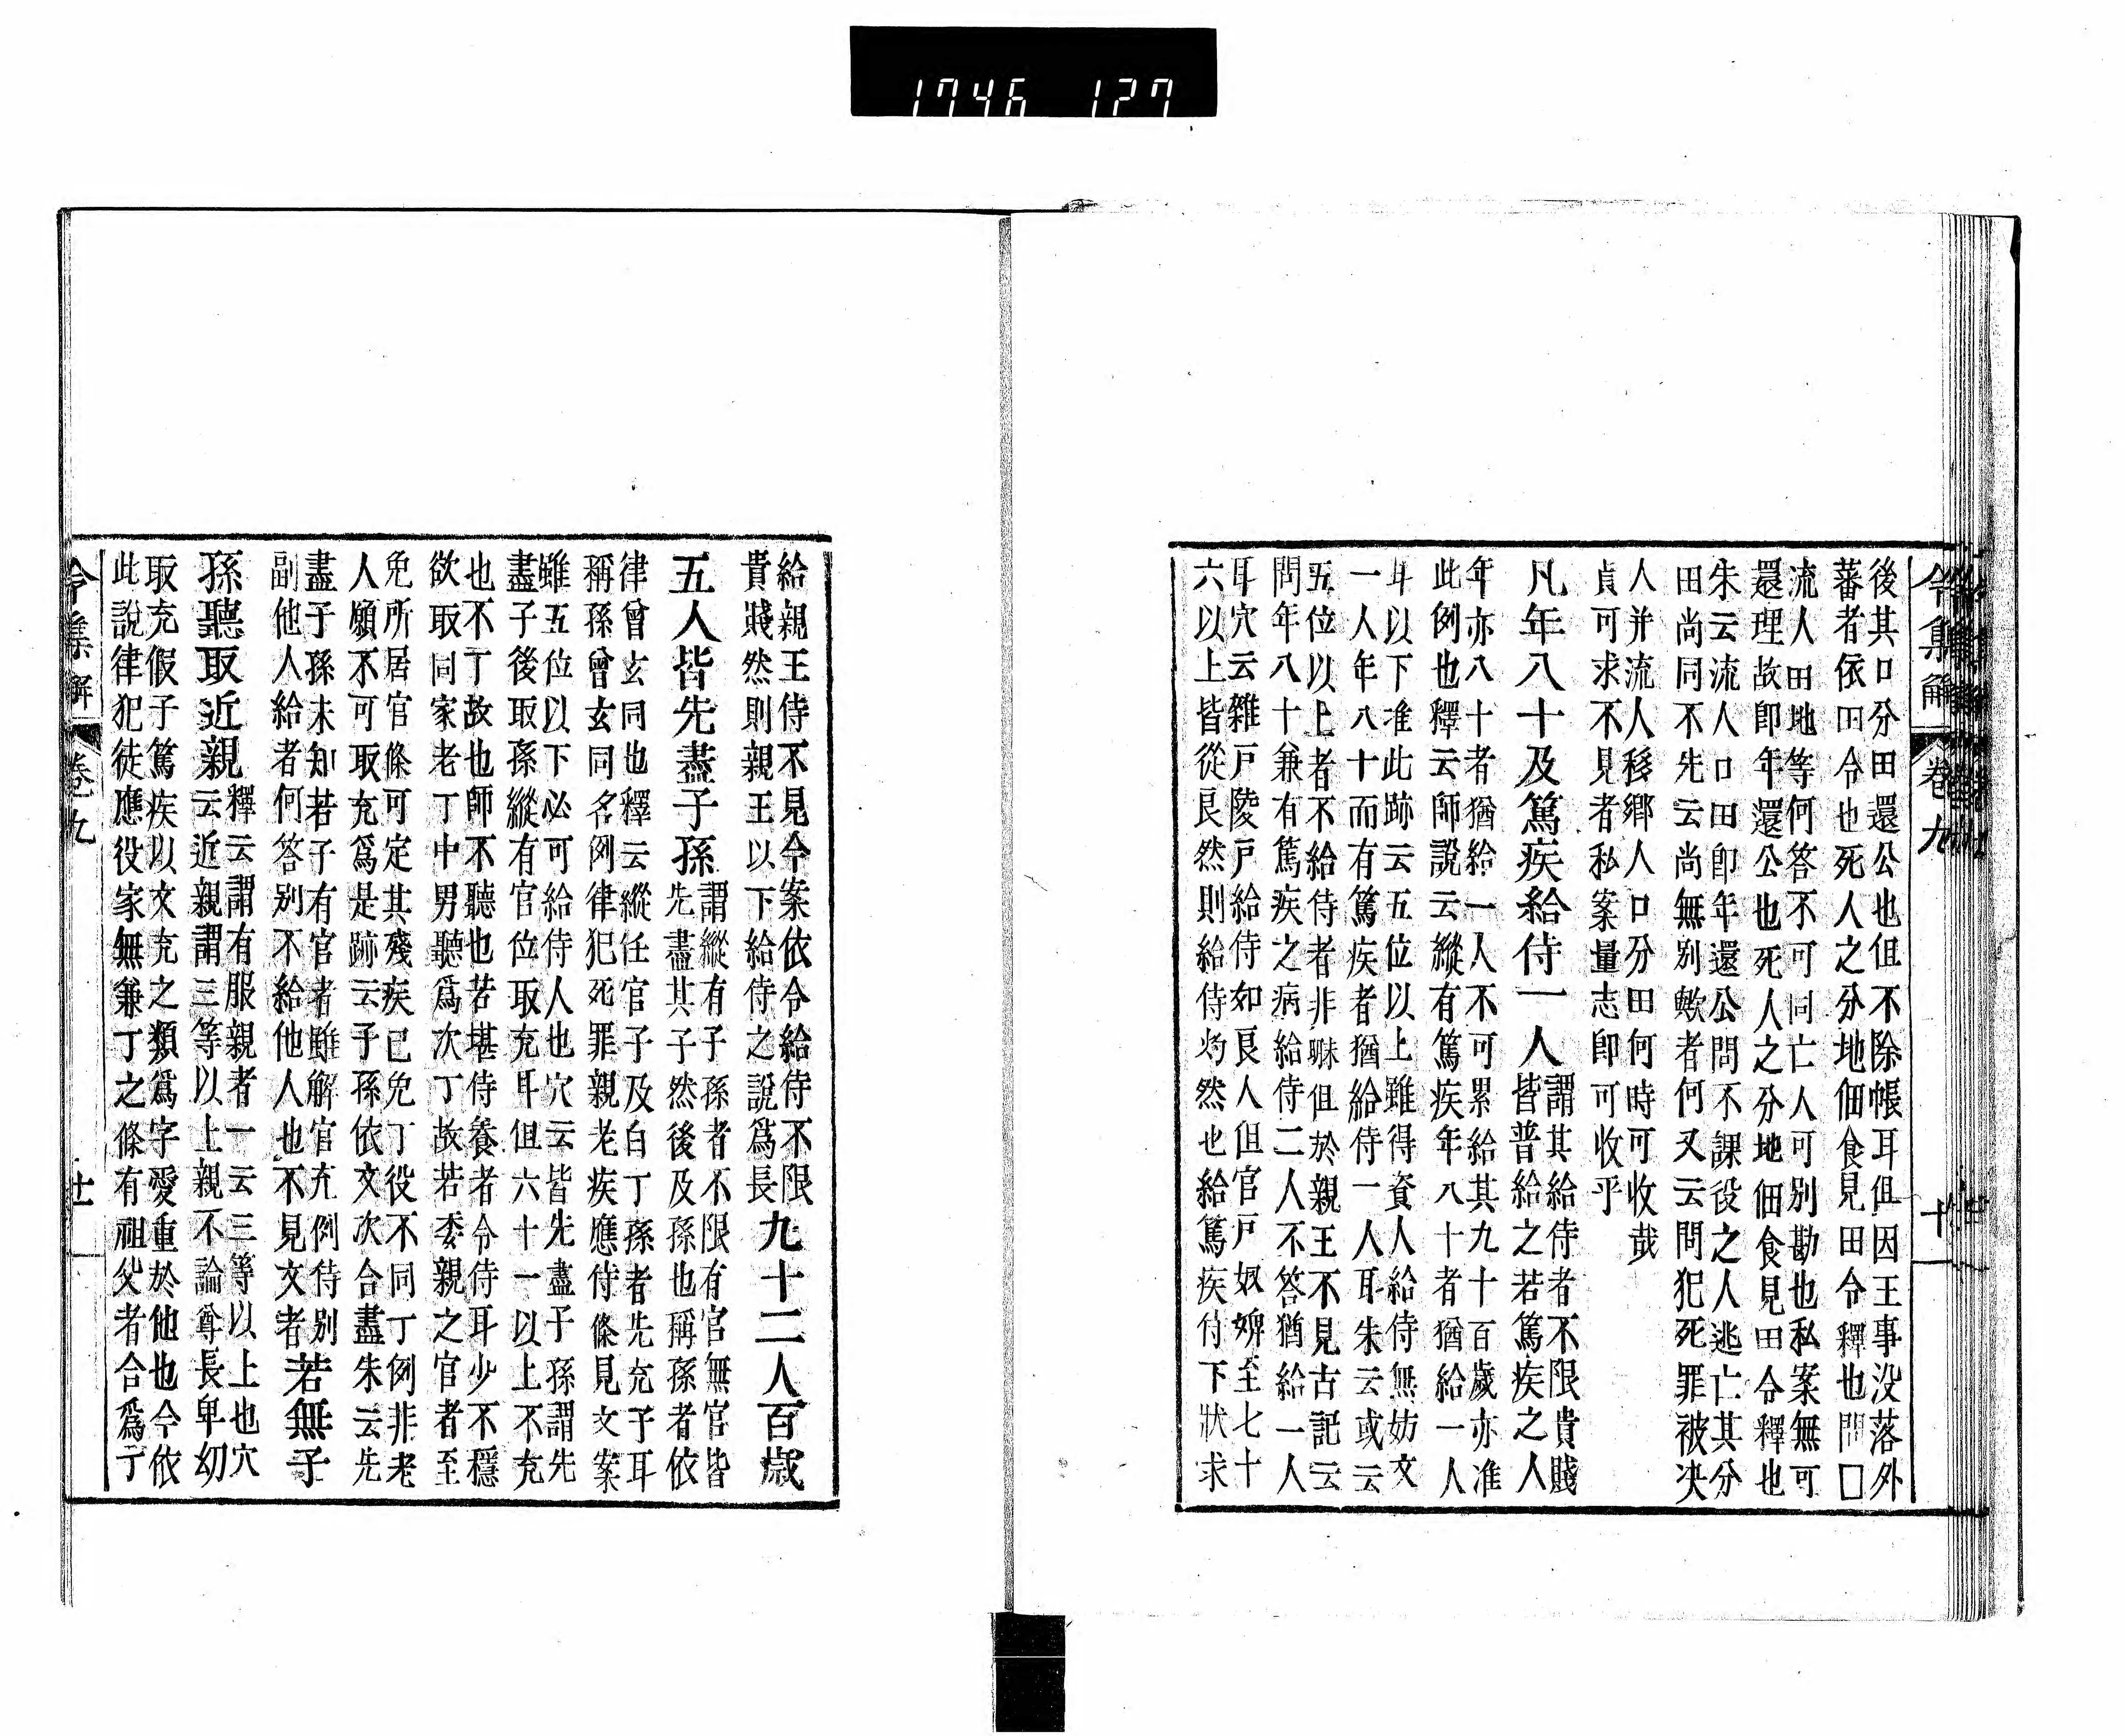 1746 127
令集解 卷九 十一
後其口分田還公也但不除帳耳但因王事没落外
蕃者依田令也死人之分地佃食見田令釋也問囗
流人田地等何答不可同亡人可別勘也私案無可
還理故卽年還公也死人之分地佃食見田令釋也
朱云流人口田卽年還公問不課役之人逃亡其分
田尚同不先云尚無別歟者何又云問犯死罪被决
人并流人移鄉人口分田何時可收哉
貞可求不見者私案量志卽可收乎
凡年八十及篤疾給侍一人
謂其給侍者不限貴賤
皆普給之若篤疾之人
年亦八十者猶給一人不可累給其九十百歲亦准
此例也釋云師說云縱有篤疾年八十者猶給一人
耳以下准此跡云五位以上雖得資人給侍無妨文
一人年八十而有篤疾者猶給侍一人耳朱云或云
五位以上者不給侍者非聯但於親王不見古記云
問年八十兼有篤疾之病給侍二人不答猶給一人
耳穴云雜戸陵戸給侍如良人但官戸奴婢至七十
六以上皆從良然則給侍灼然也給篤疾侍下狀求
給親王侍不見令案依令給侍不限
貴賤然則親王以下給侍之說爲長
九十二人百歲
五人皆先盡子孫
謂縱有子孫者不限有官無官皆
先盡其子然後及孫也稱孫者依
律曾玄同也釋云縱任官子及白丁孫者先充子耳
稱孫曾玄同名例律犯死罪親老疾應侍條見文案
雖五位以下必可給侍人也穴云皆先盡子孫謂先
盡子後取孫縱有官位取充耳但六十一以上不充
也不丁故也師不聽也若堪侍養者令侍耳少不穩
欲取同家老丁中男聽爲次丁故若委親之官者至
免所居官條可定其殘疾已免丁役不同丁例非老
人願不可取充爲是跡云子孫依文次合盡朱云先
盡子孫未知若子有官者雖解官充例侍別
副他人給者何答別不給他人也不見文者
若無子
孫聽取近親
釋云謂有服親者一云三等以上也穴
云近親謂三等以上親不論尊長卑幼
取充假子篤疾以文充之類爲字愛重於他也今依
此說律犯徒應役家無兼丁之條有祖父者合爲丁
令集解 卷九 十一